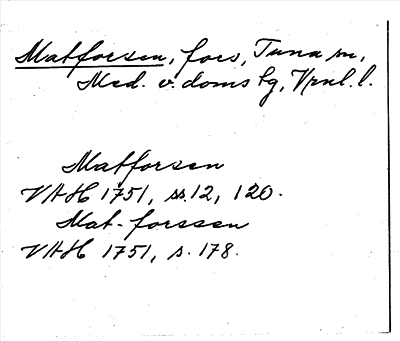 Matforsen, fors, Tuna sn,
Med. v. doms sg, Vrnl. l.
Matforsen
VAH 1751, ss. 12, 120.
Mat-forssen
VAH 1751, s. 178.